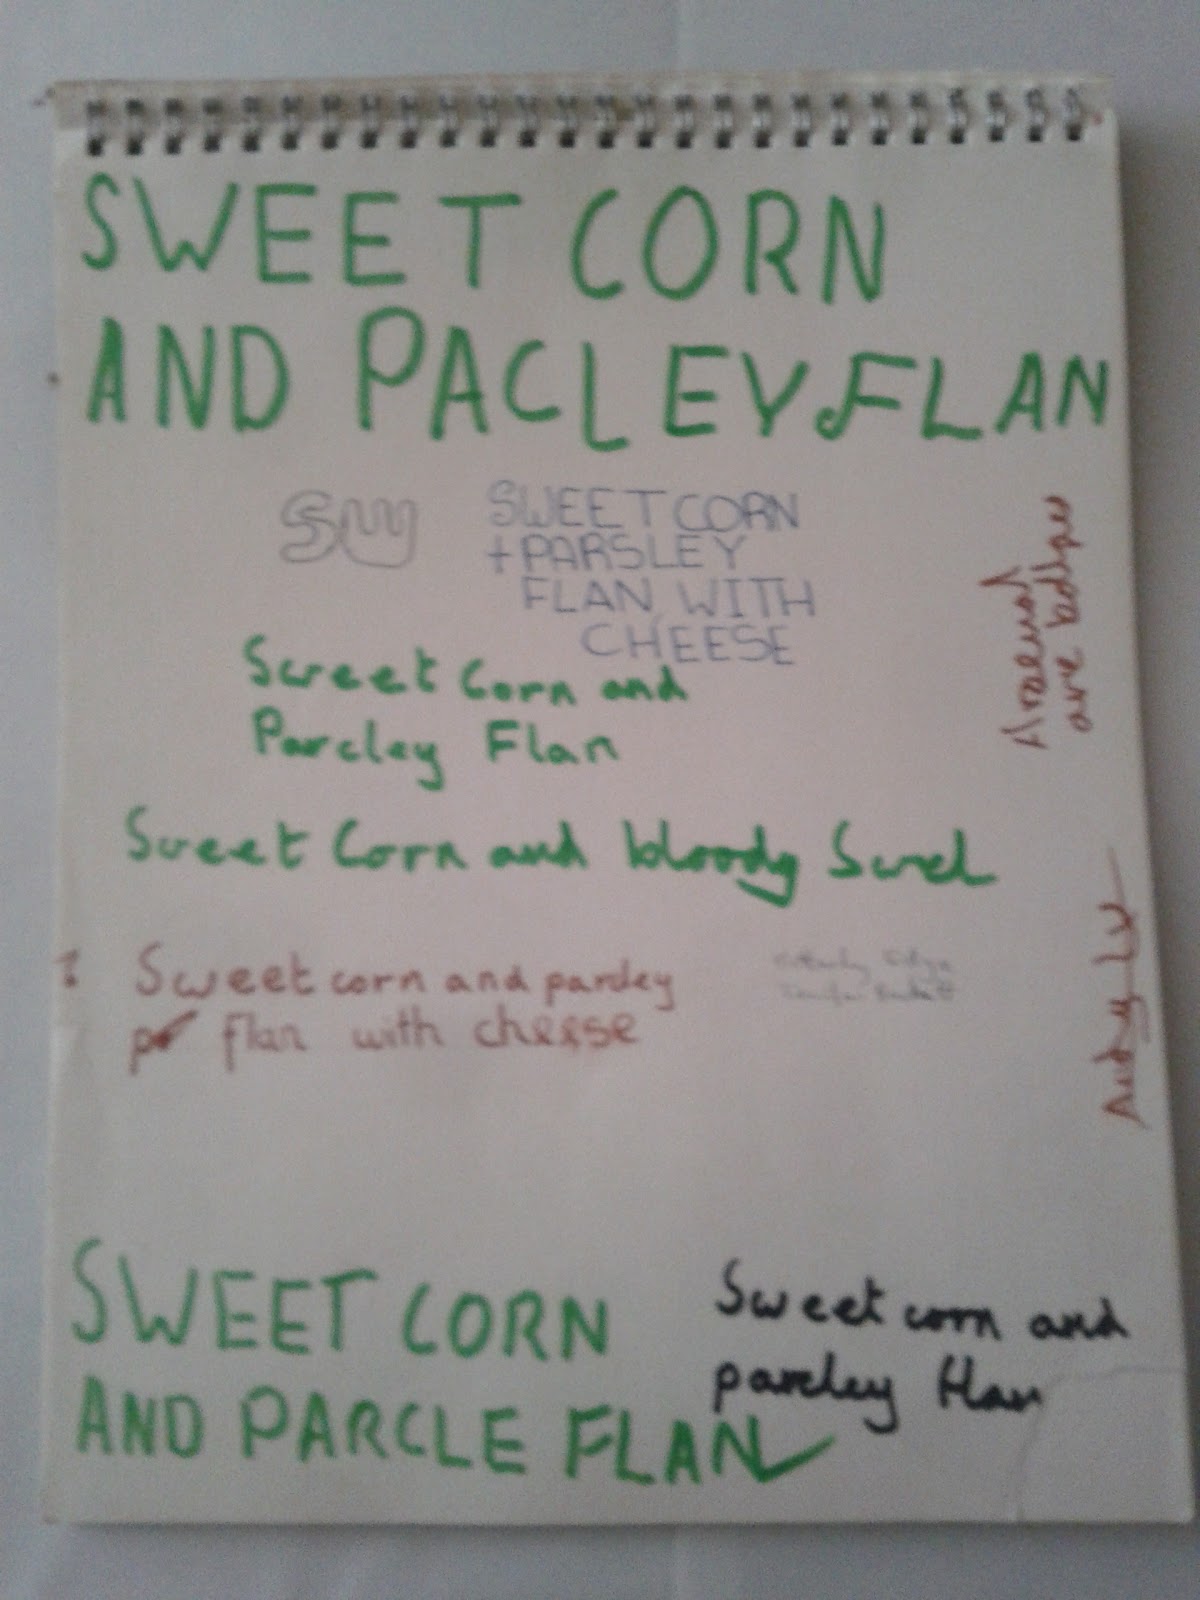 SWEET CORN
AND PACLEY FLAN
SW
SWEETCORN
+ PARSLEY
FLAN WITH
CHEESE
Sweet Corn and
Parcley Flan
Sweet Corn and bloody Swel
? Sweet corn and parsley
flan with cheese
are
Andy
SWEET CORN
AND PARCLE FLAN
Sweet corn and
parcley flan